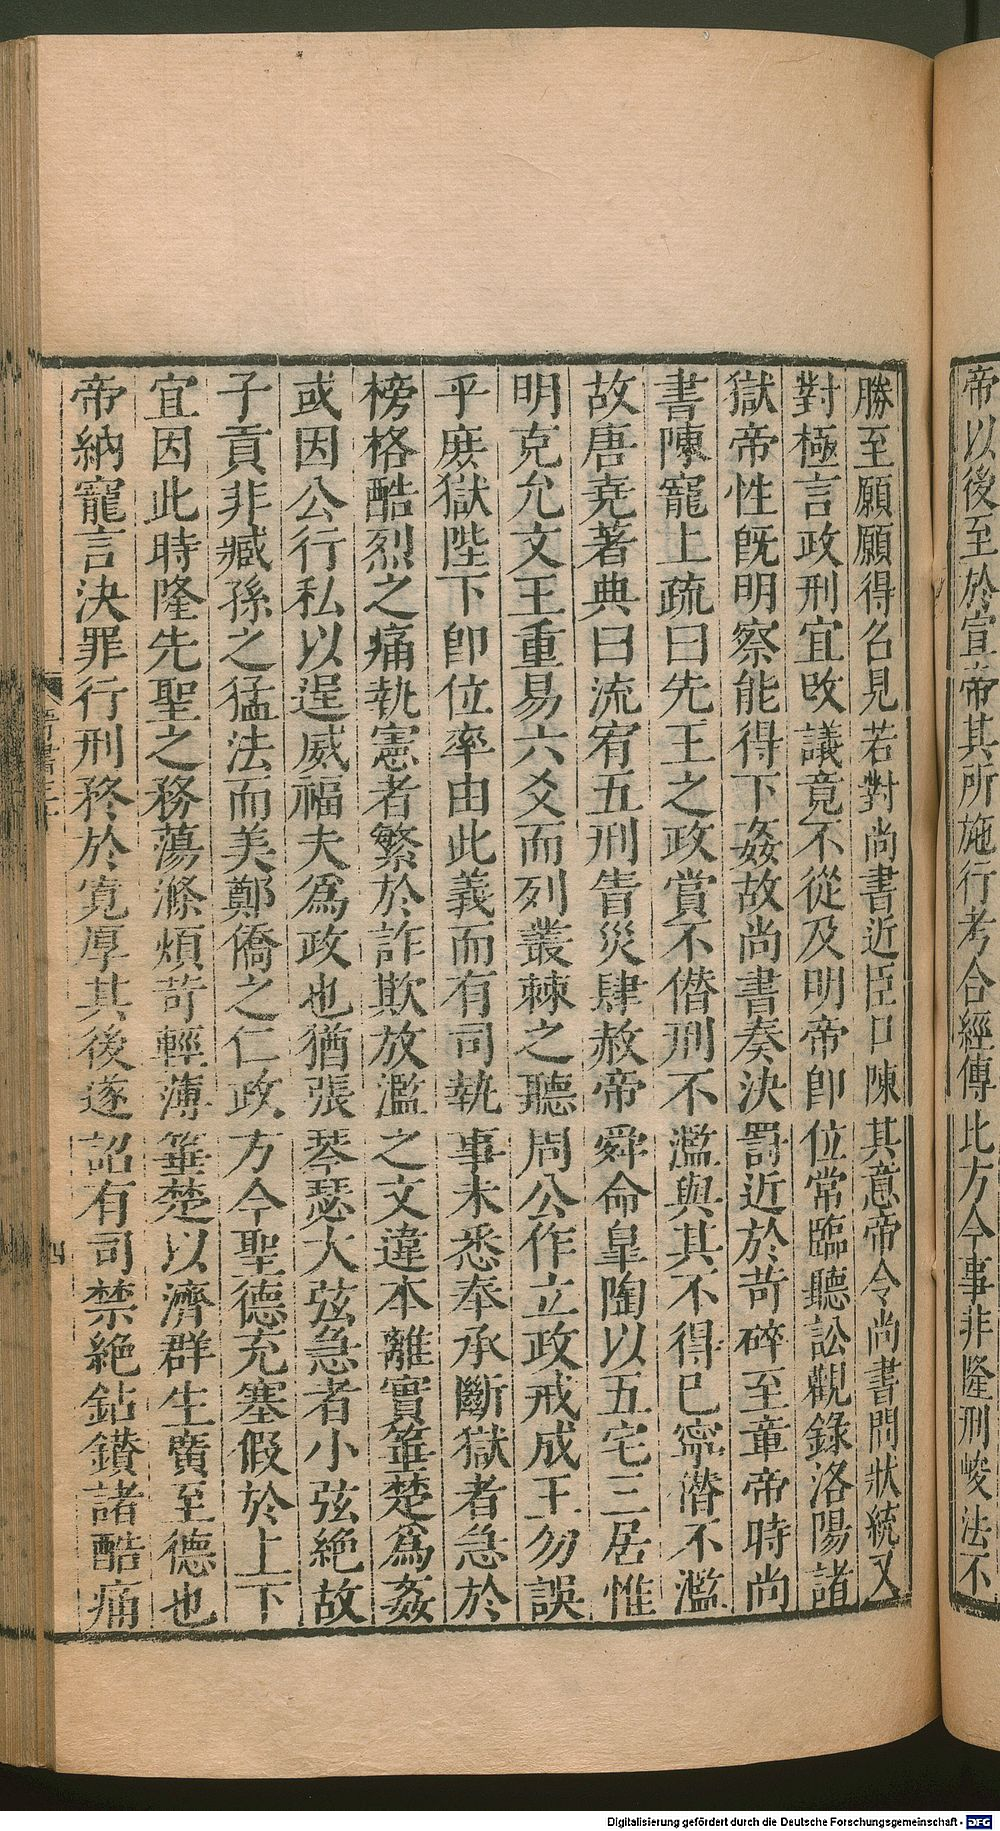 帝以後至於宣帝其所施行考合經傳比方今事非隆刑峻法不
勝至願願得召見若對尚書近臣口陳其意帝令尚書問狀統又
對極言政刑宜改議竟不從及明帝即位常臨聽訟觀錄洛陽諸
獄帝性既明察能得下姦故尚書奏決罰近於苛碎至章帝時尚
書陳寵上疏曰先王之政賞不僭刑不濫與其不得已寧僭不濫
故唐堯著典曰流宥五刑眚災肆赦帝舜命皐陶以五宅三居惟
明克允文王重易六爻而列叢棘之聽周公作立政戒成王勿誤
乎庶獄陛下即位率由此義而有司執事未悉奉承斷獄者急於
榜格酷烈之痛執憲者繁於詐欺放濫之文違本離實箠楚爲姦
或因公行私以逞威福夫爲政也猶張琴瑟大弦急者小弦絶故
子貢非臧孫之猛法而美鄭僑之仁政方今聖德充塞假於上下
宜因此時隆先聖之務蕩滌煩苛輕薄箠楚以濟群生廣至德也
帝納寵言決罪行刑務於寬厚其後遂詔有司禁絶鉆鑚諸酷痛
四
Digitalisierung gefördert durch die Deutsche Forschungsgemeinschaft - DFG